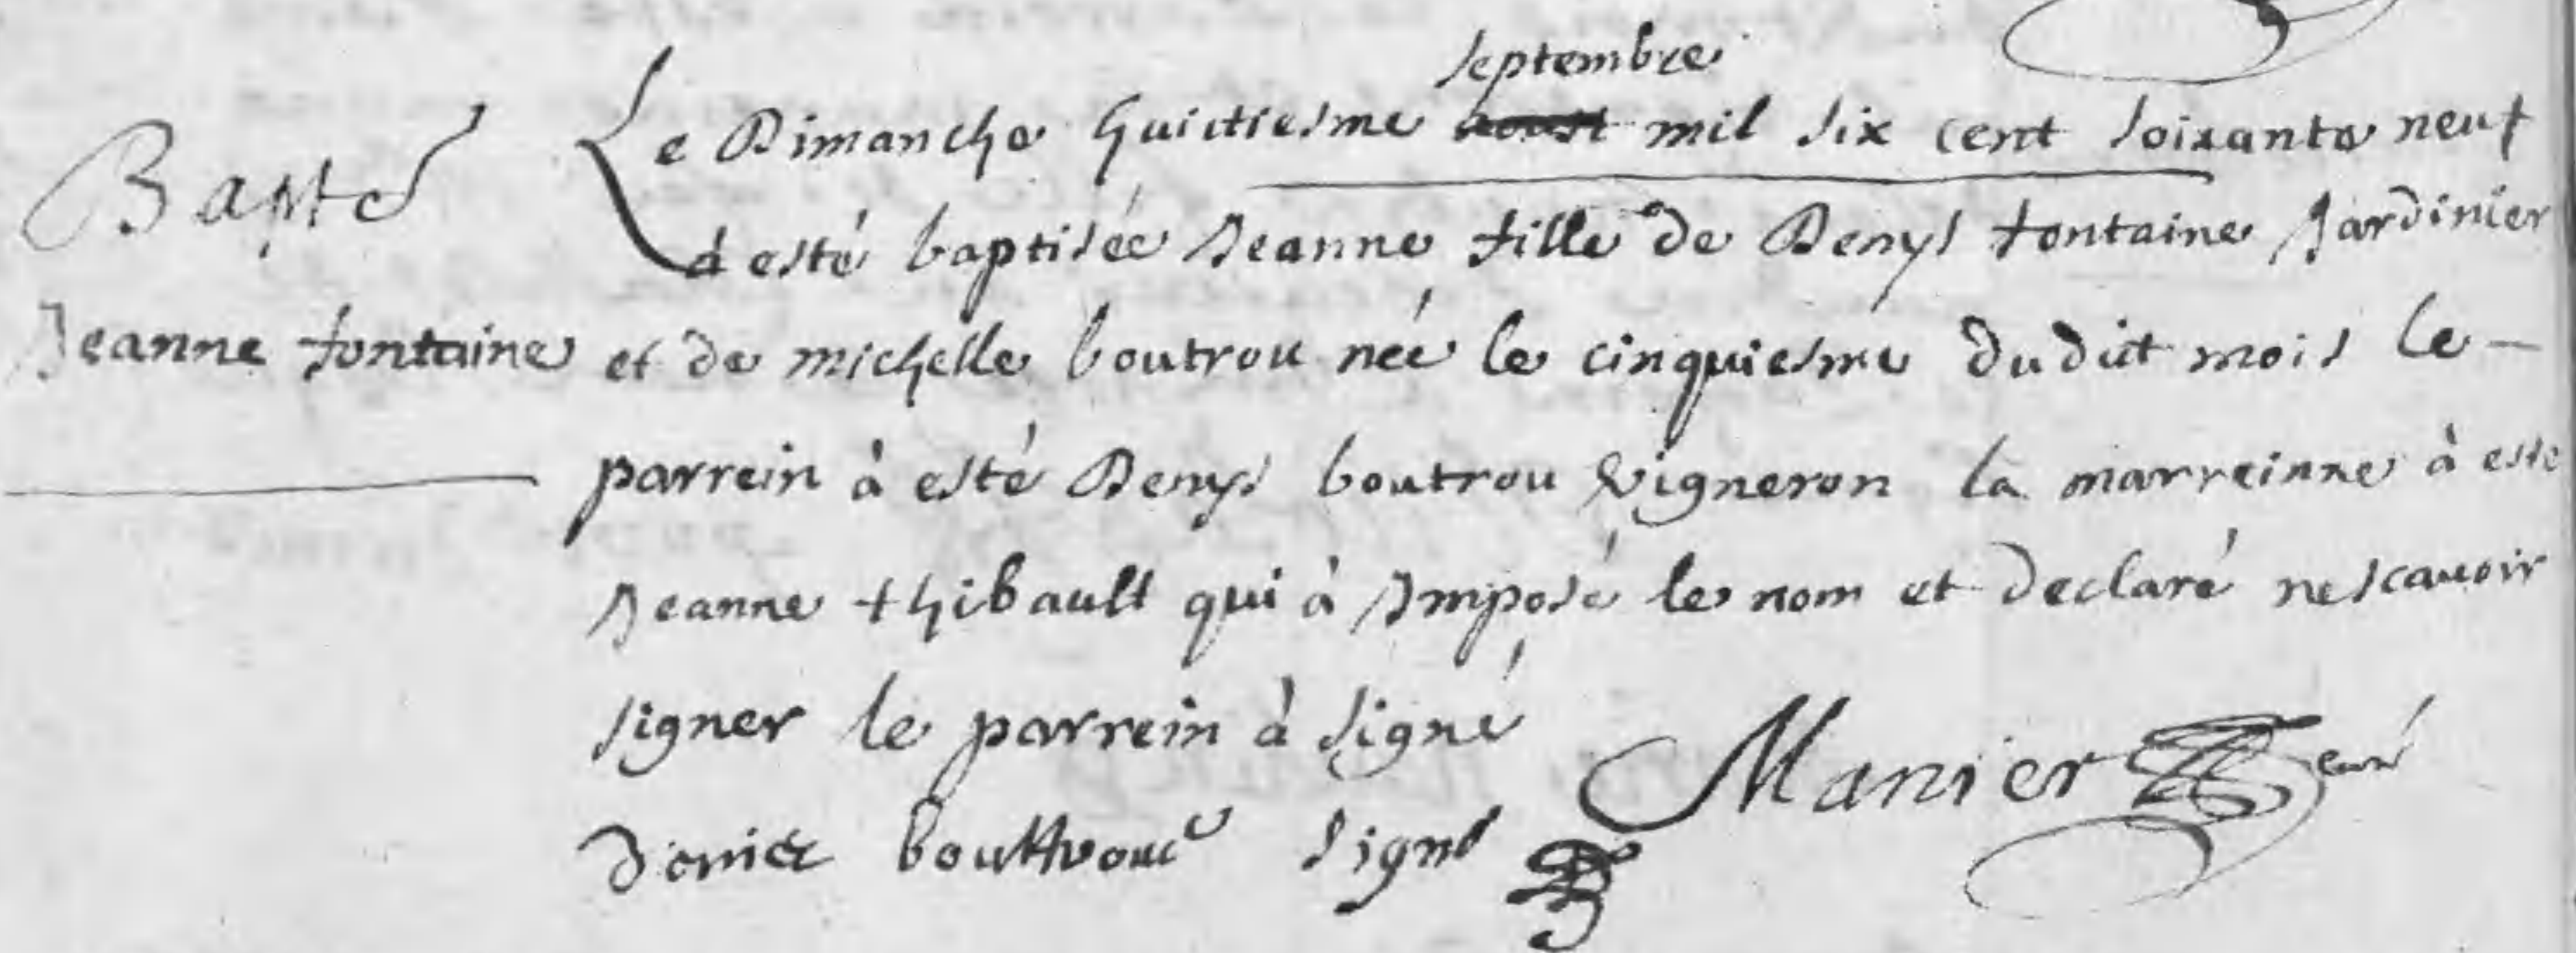 septembre
Le Dimanche huictiesme aoust mil six cent soixante neuf
Bapt
à esté baptisée Jeanne fille de Denys fontaine Jardinier
Jeanne fontaine
et de michelle boutrou née le cinquiesme dudict mois le -
parrein à esté Denys boutrou Vigneron la marreinne à esté
Jeanne thibault qui à Imposé le nom et declaré nescavoir
signer le parrein à signé
Manier curé
signé